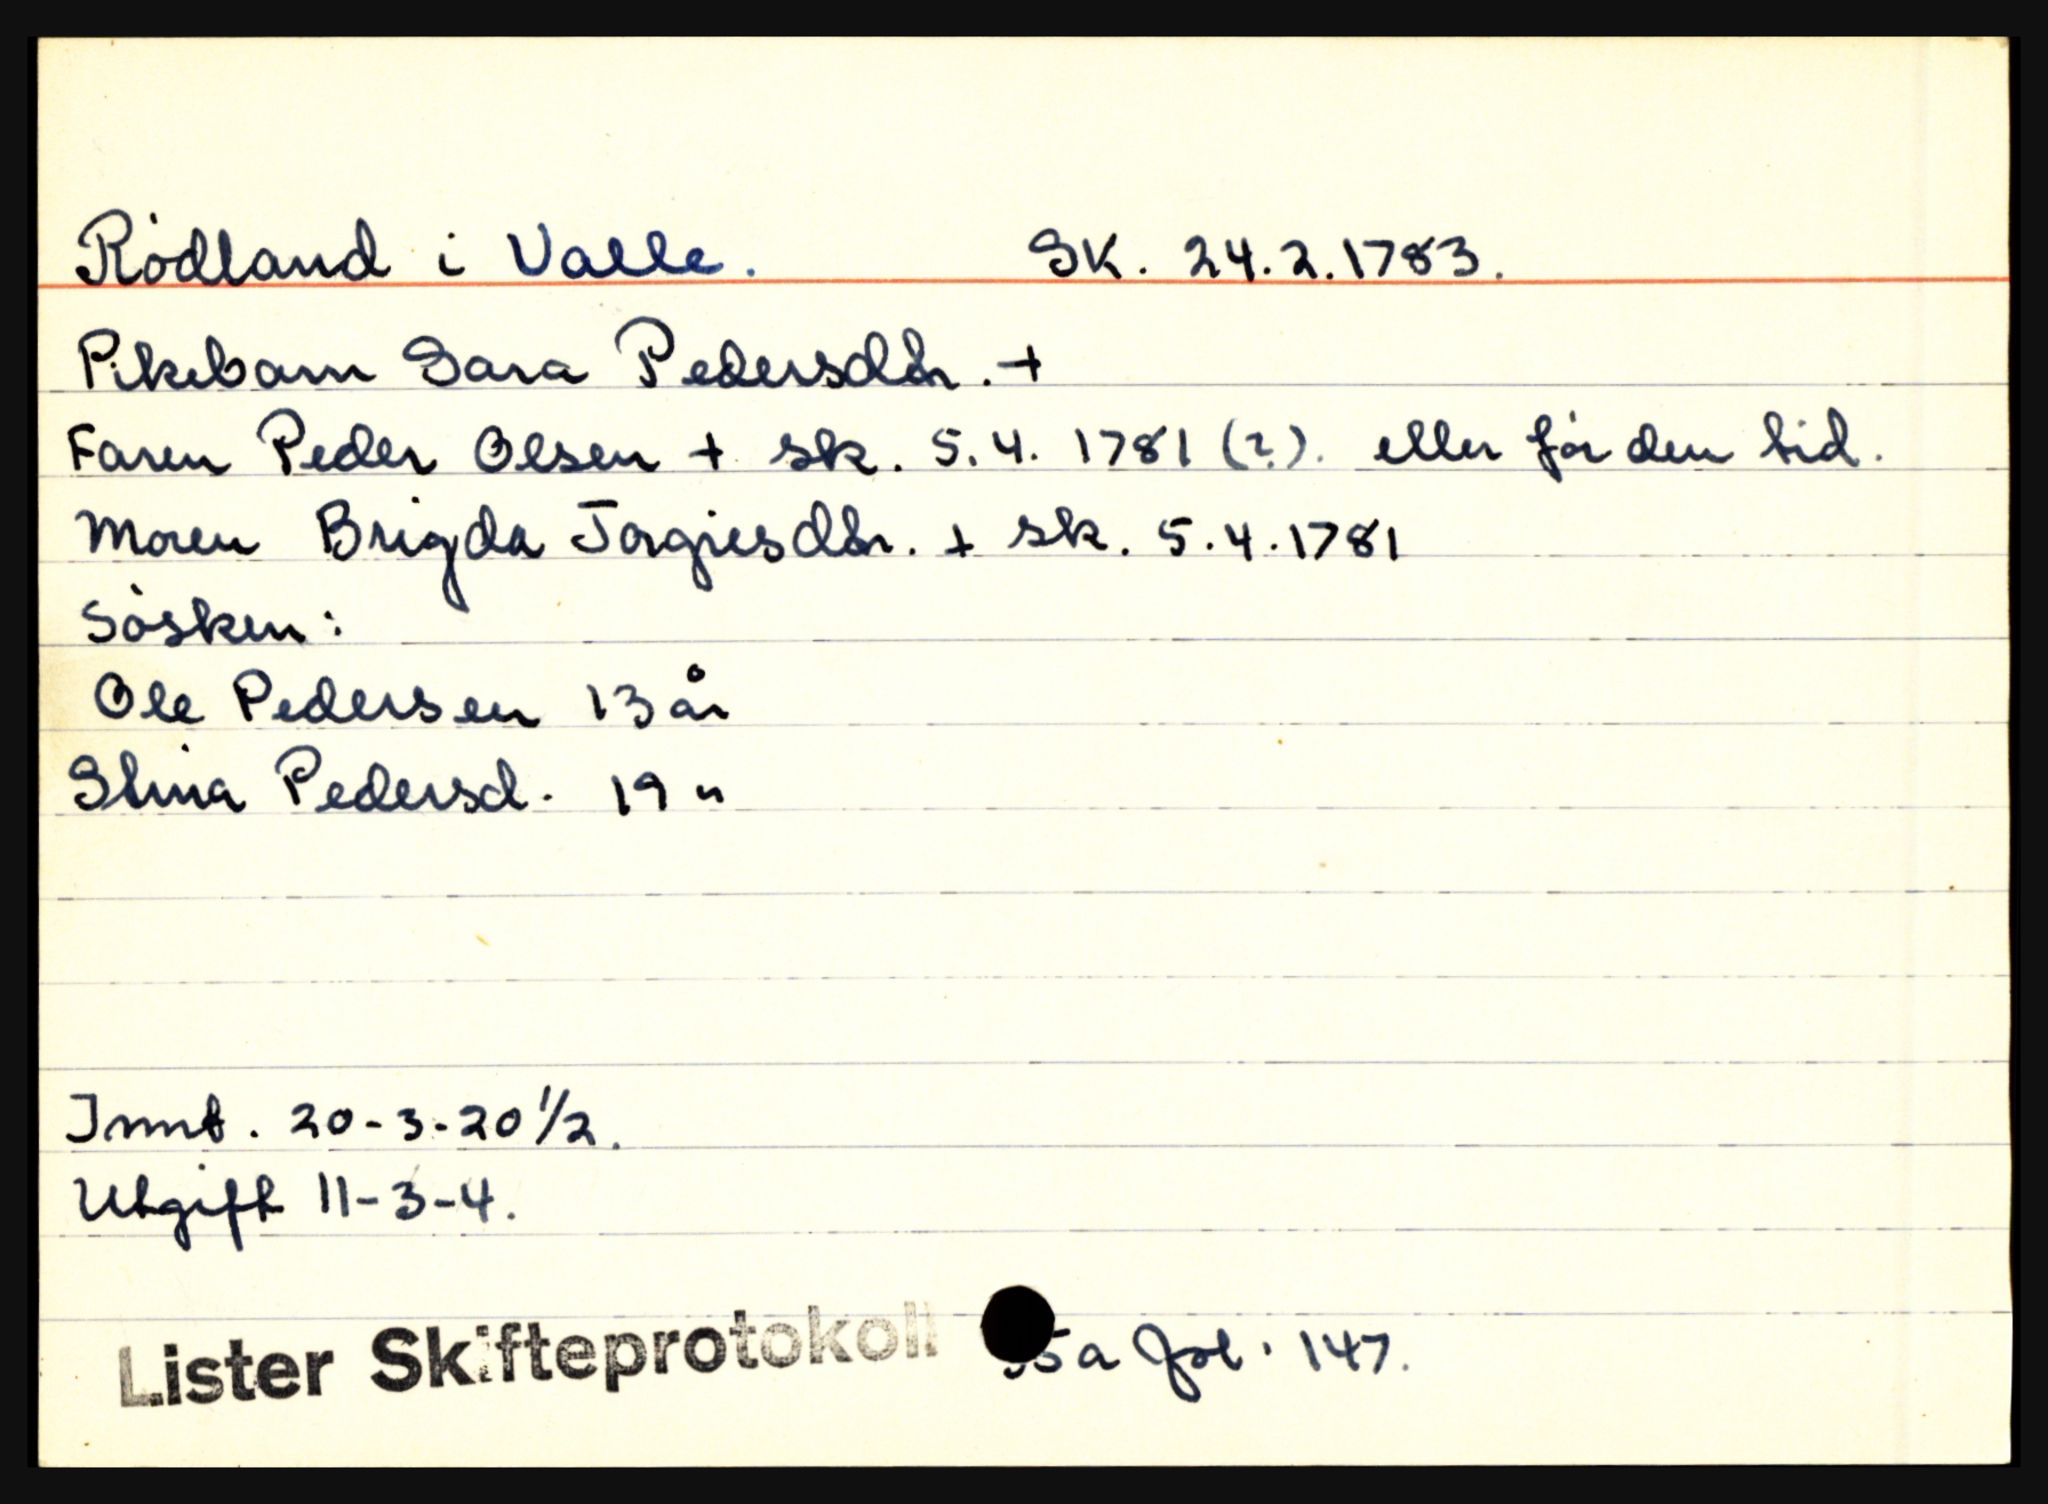 Rödland i Valle. SK. 24.2.1783.
Pikebarn Sara Pedersdtr. +
Faren Peder Olsen + sk. 5.4. 1781 (?). eller för den tid.
Moren Brigda Torgiesdtr. + sk. 5.4.1781
Sösken:
Ole Pedersen 13 år
Stina Pedersd. 19 "
Innt. 20-3-20 1/2.
Utgift 11-3-4.
Lister Skifteprotokoll 5a fol. 147.